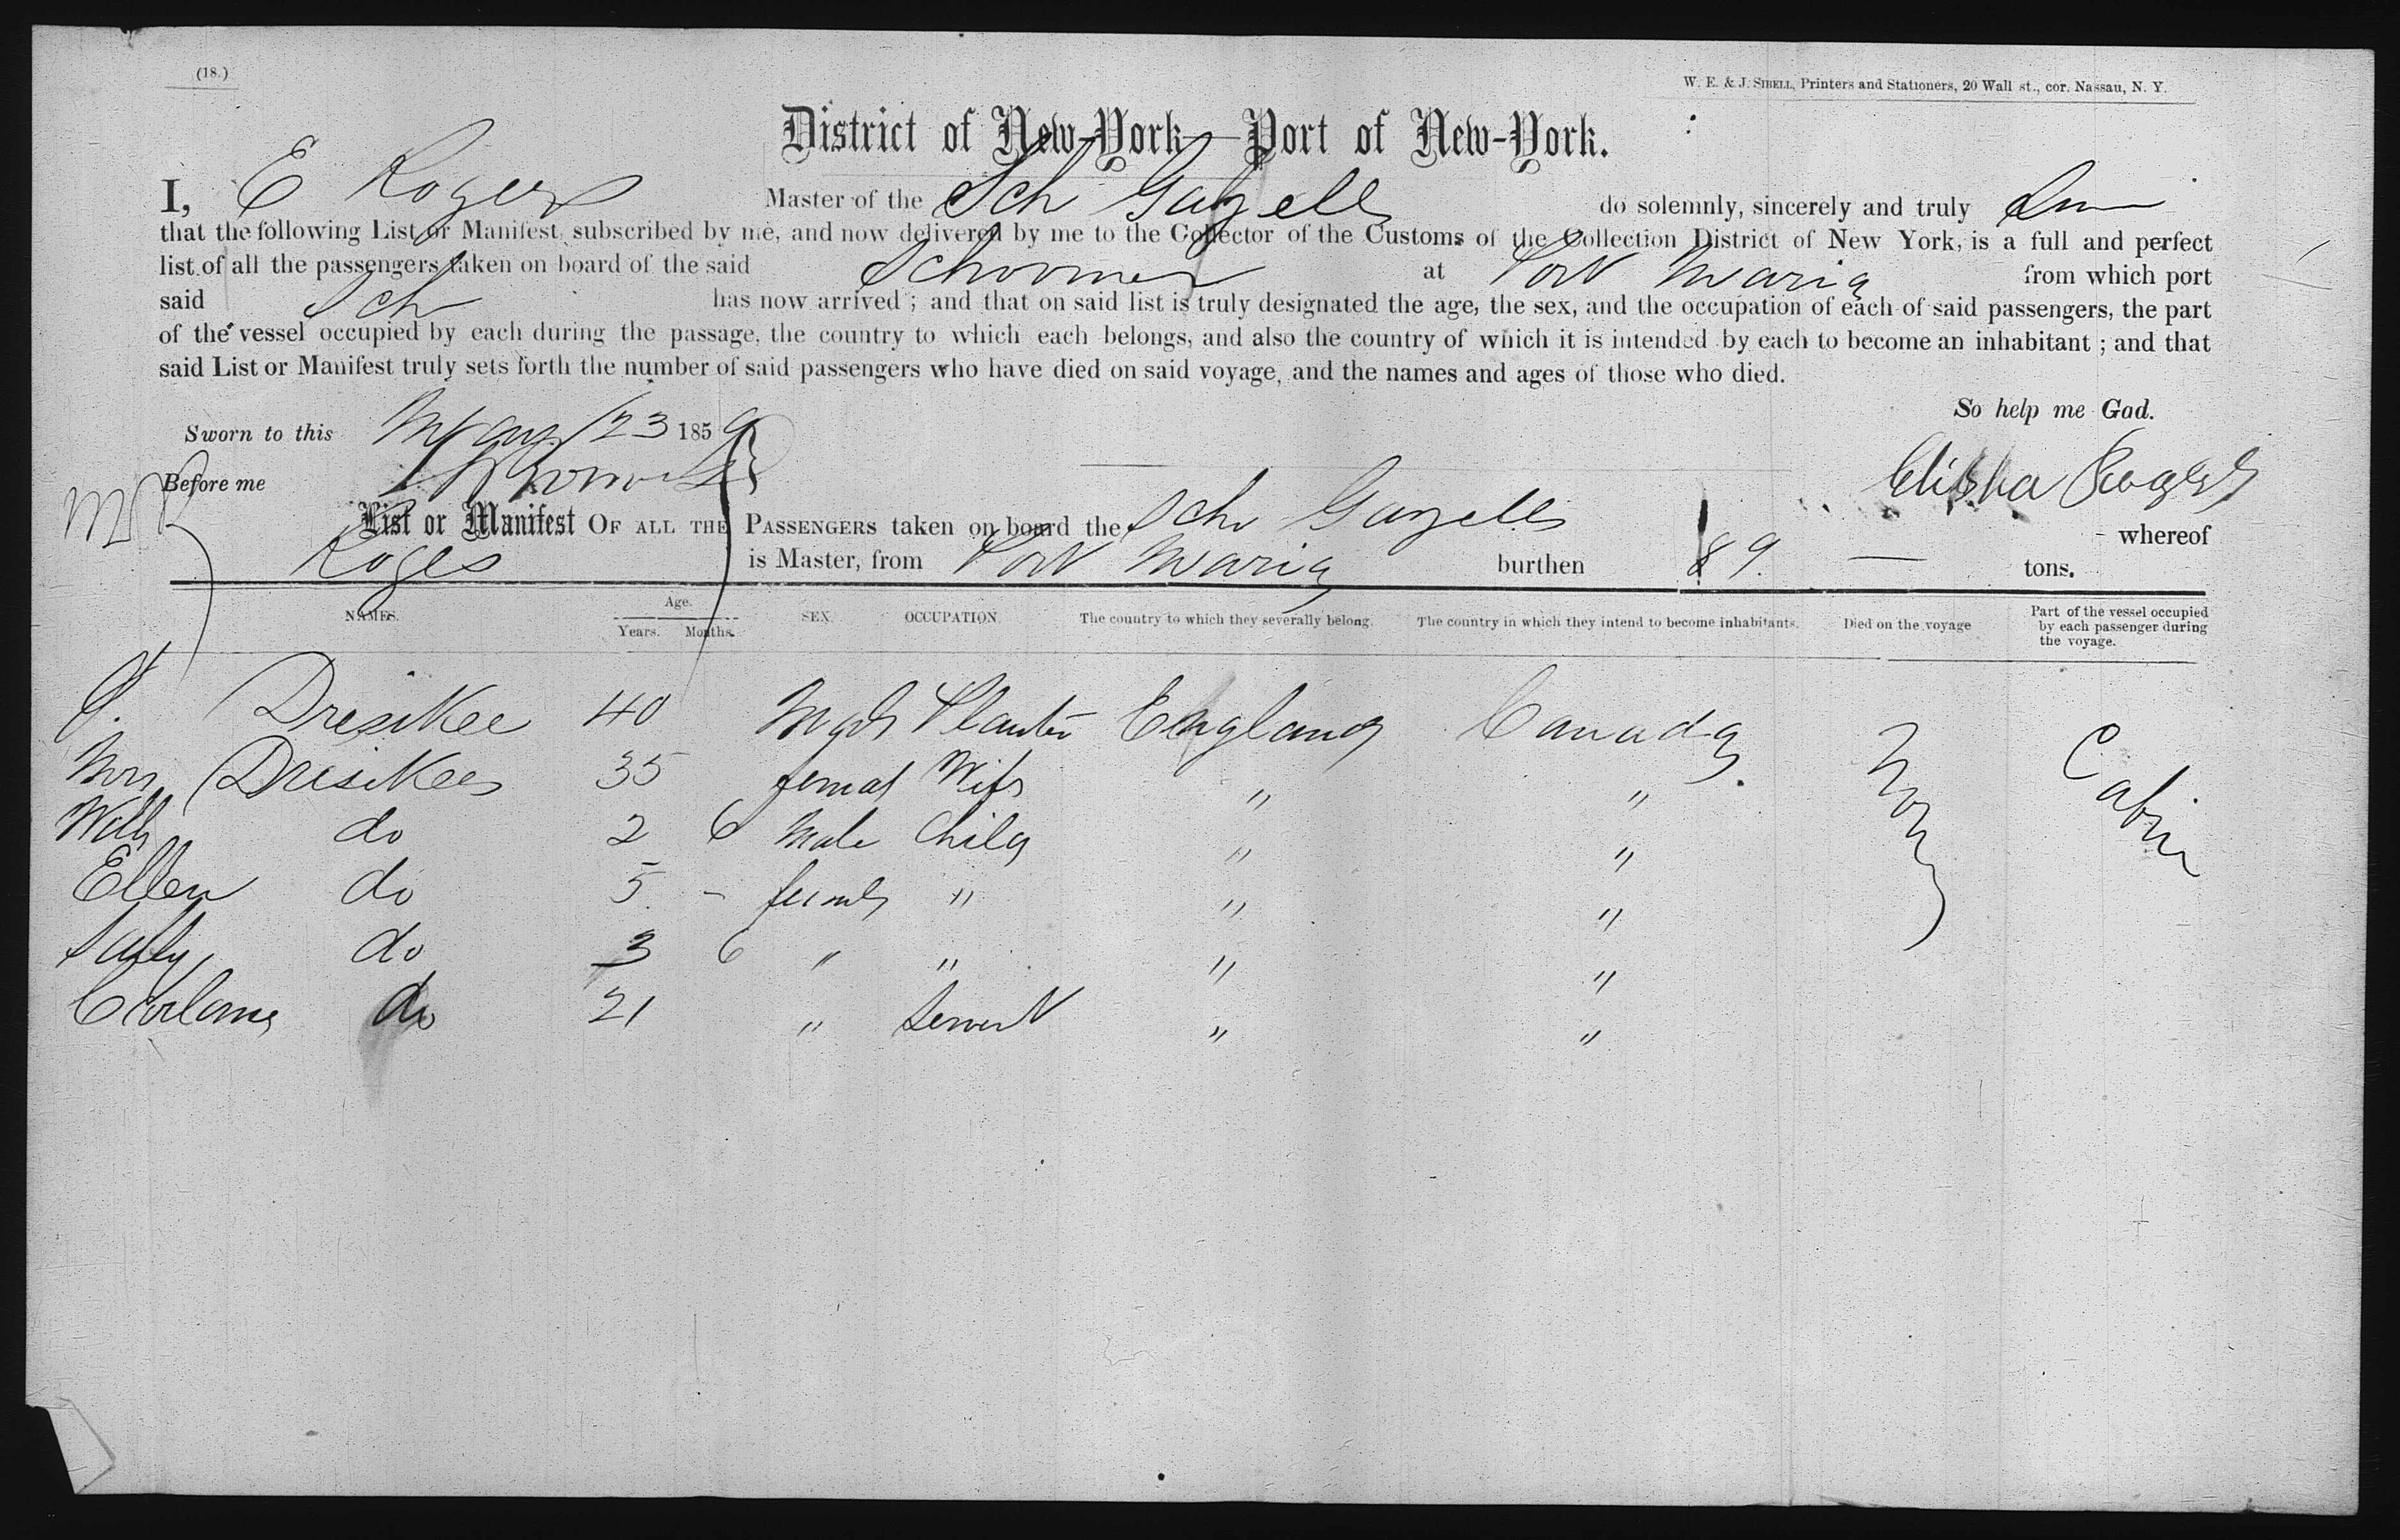 (18.)
W. E. & J. SIBELL, Printers and Stationers, 20 Wall st., cor. Nassau, N. Y.
District of New-York—Port of New-York.
I, E Rogers Master of the Sch Gazelle do solemnly, sincerely and truly
that the following List or Manifest, subscribed by me, and now delivered by me to the Collector of the Customs of the Collection District of New York, is a full and perfect
list of all the passengers taken on board of the said Schooner at Port Maria from which port
said Sch has now arrived; and that on said list is truly designated the age, the sex, and the occupation of each of said passengers, the part
of the vessel occupied by each during the passage, the country to which each belongs, and also the country of which it is intended by each to become an inhabitant; and that
said List or Manifest truly sets forth the number of said passengers who have died on said voyage, and the names and ages of those who died.
So help me God.
Sworn to this May 23 1859
Elisha Rogers
Before me
List or Manifest OF ALL THE PASSENGERS taken on board the Sch Gazelle whereof
Roges is Master, from Port Maria burthen 89 — tons.
NAMES. Age. Years. Months. SEX. OCCUPATION. The country to which they severally belong. The country in which they intend to become inhabitants. Died on the voyage Part of the vessel occupied by each passenger during the voyage.
Dresikee 40 Planter England Canada
Mrs Dresikee 35 femal Wife " "
do 2 6 Male Child " "
Ellen do 5 - female " " "
Sally do 3 6 " " " "
do 21 " Servent " "
None
Cabin